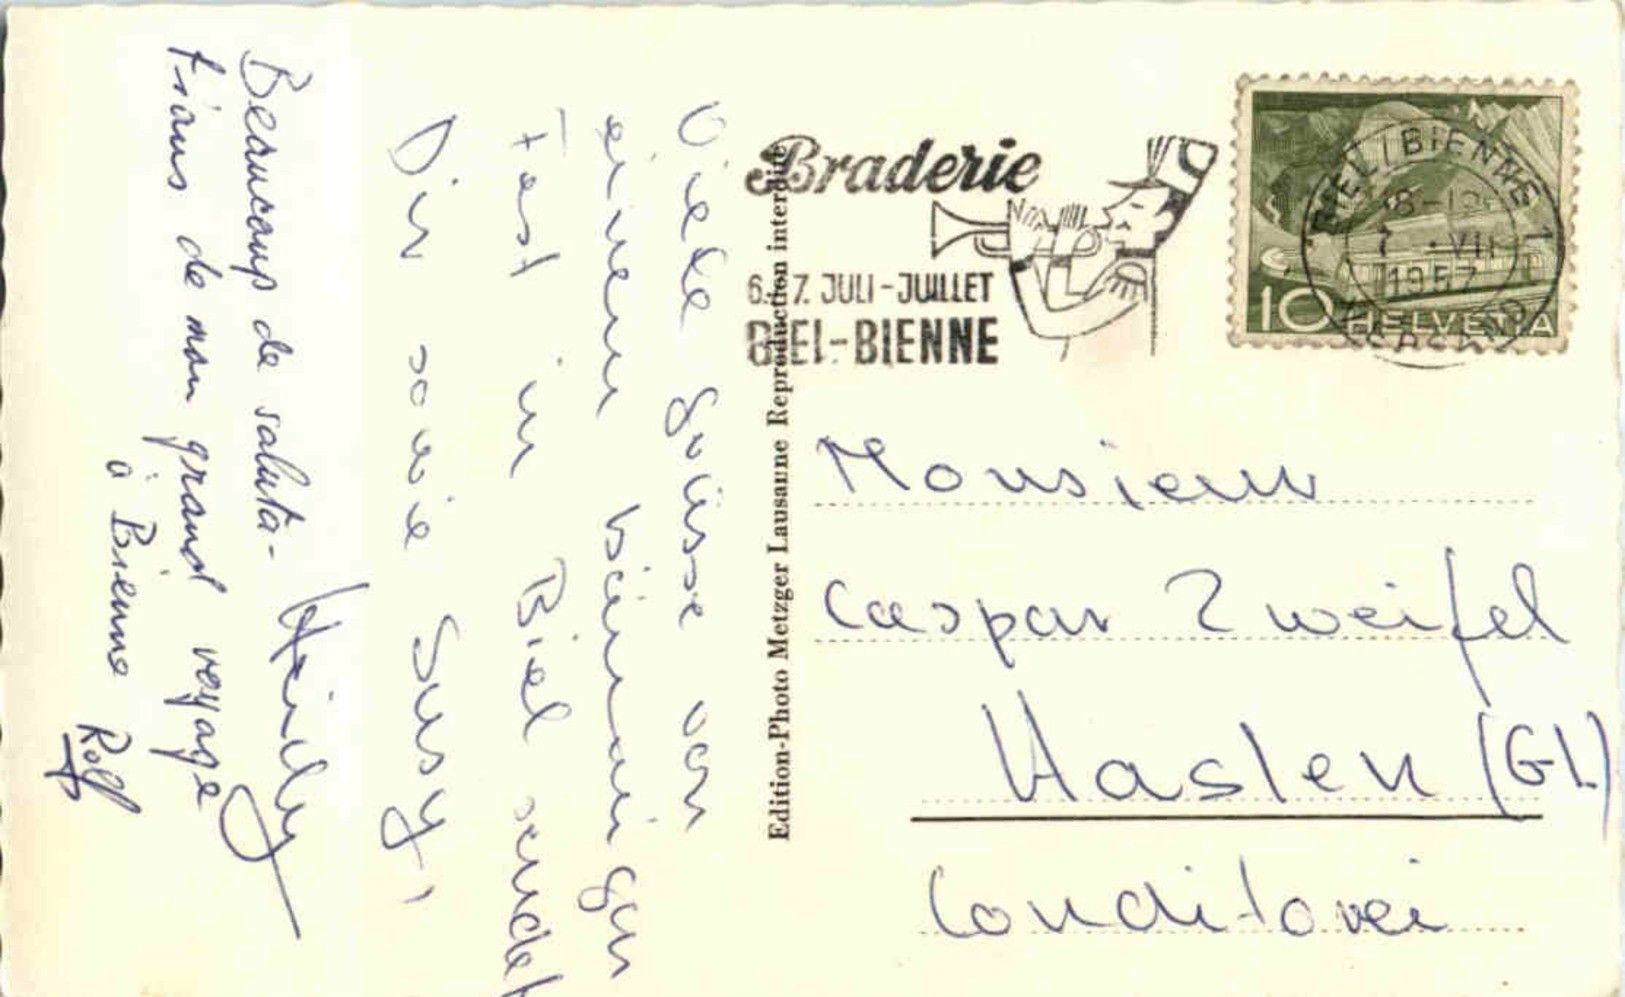 Viele Grüsse von
einem bäumigen
Fest in Biel sendet
Dir sowie Susy,
Heinly
Beaucoup de saluta-
tions de mon grand voyage
à Bienne Rolf
Edition-Photo Metzger Lausanne Reproduction interdite
Braderie
6.-7. JULI-JUILLET
BIEL-BIENNE
BIEL/BIENNE 1
18-19
7.-VII
1957
10 HELVETIA
Monsieur
Caspar Zweifel
Haslen (Gl.)
Conditorei